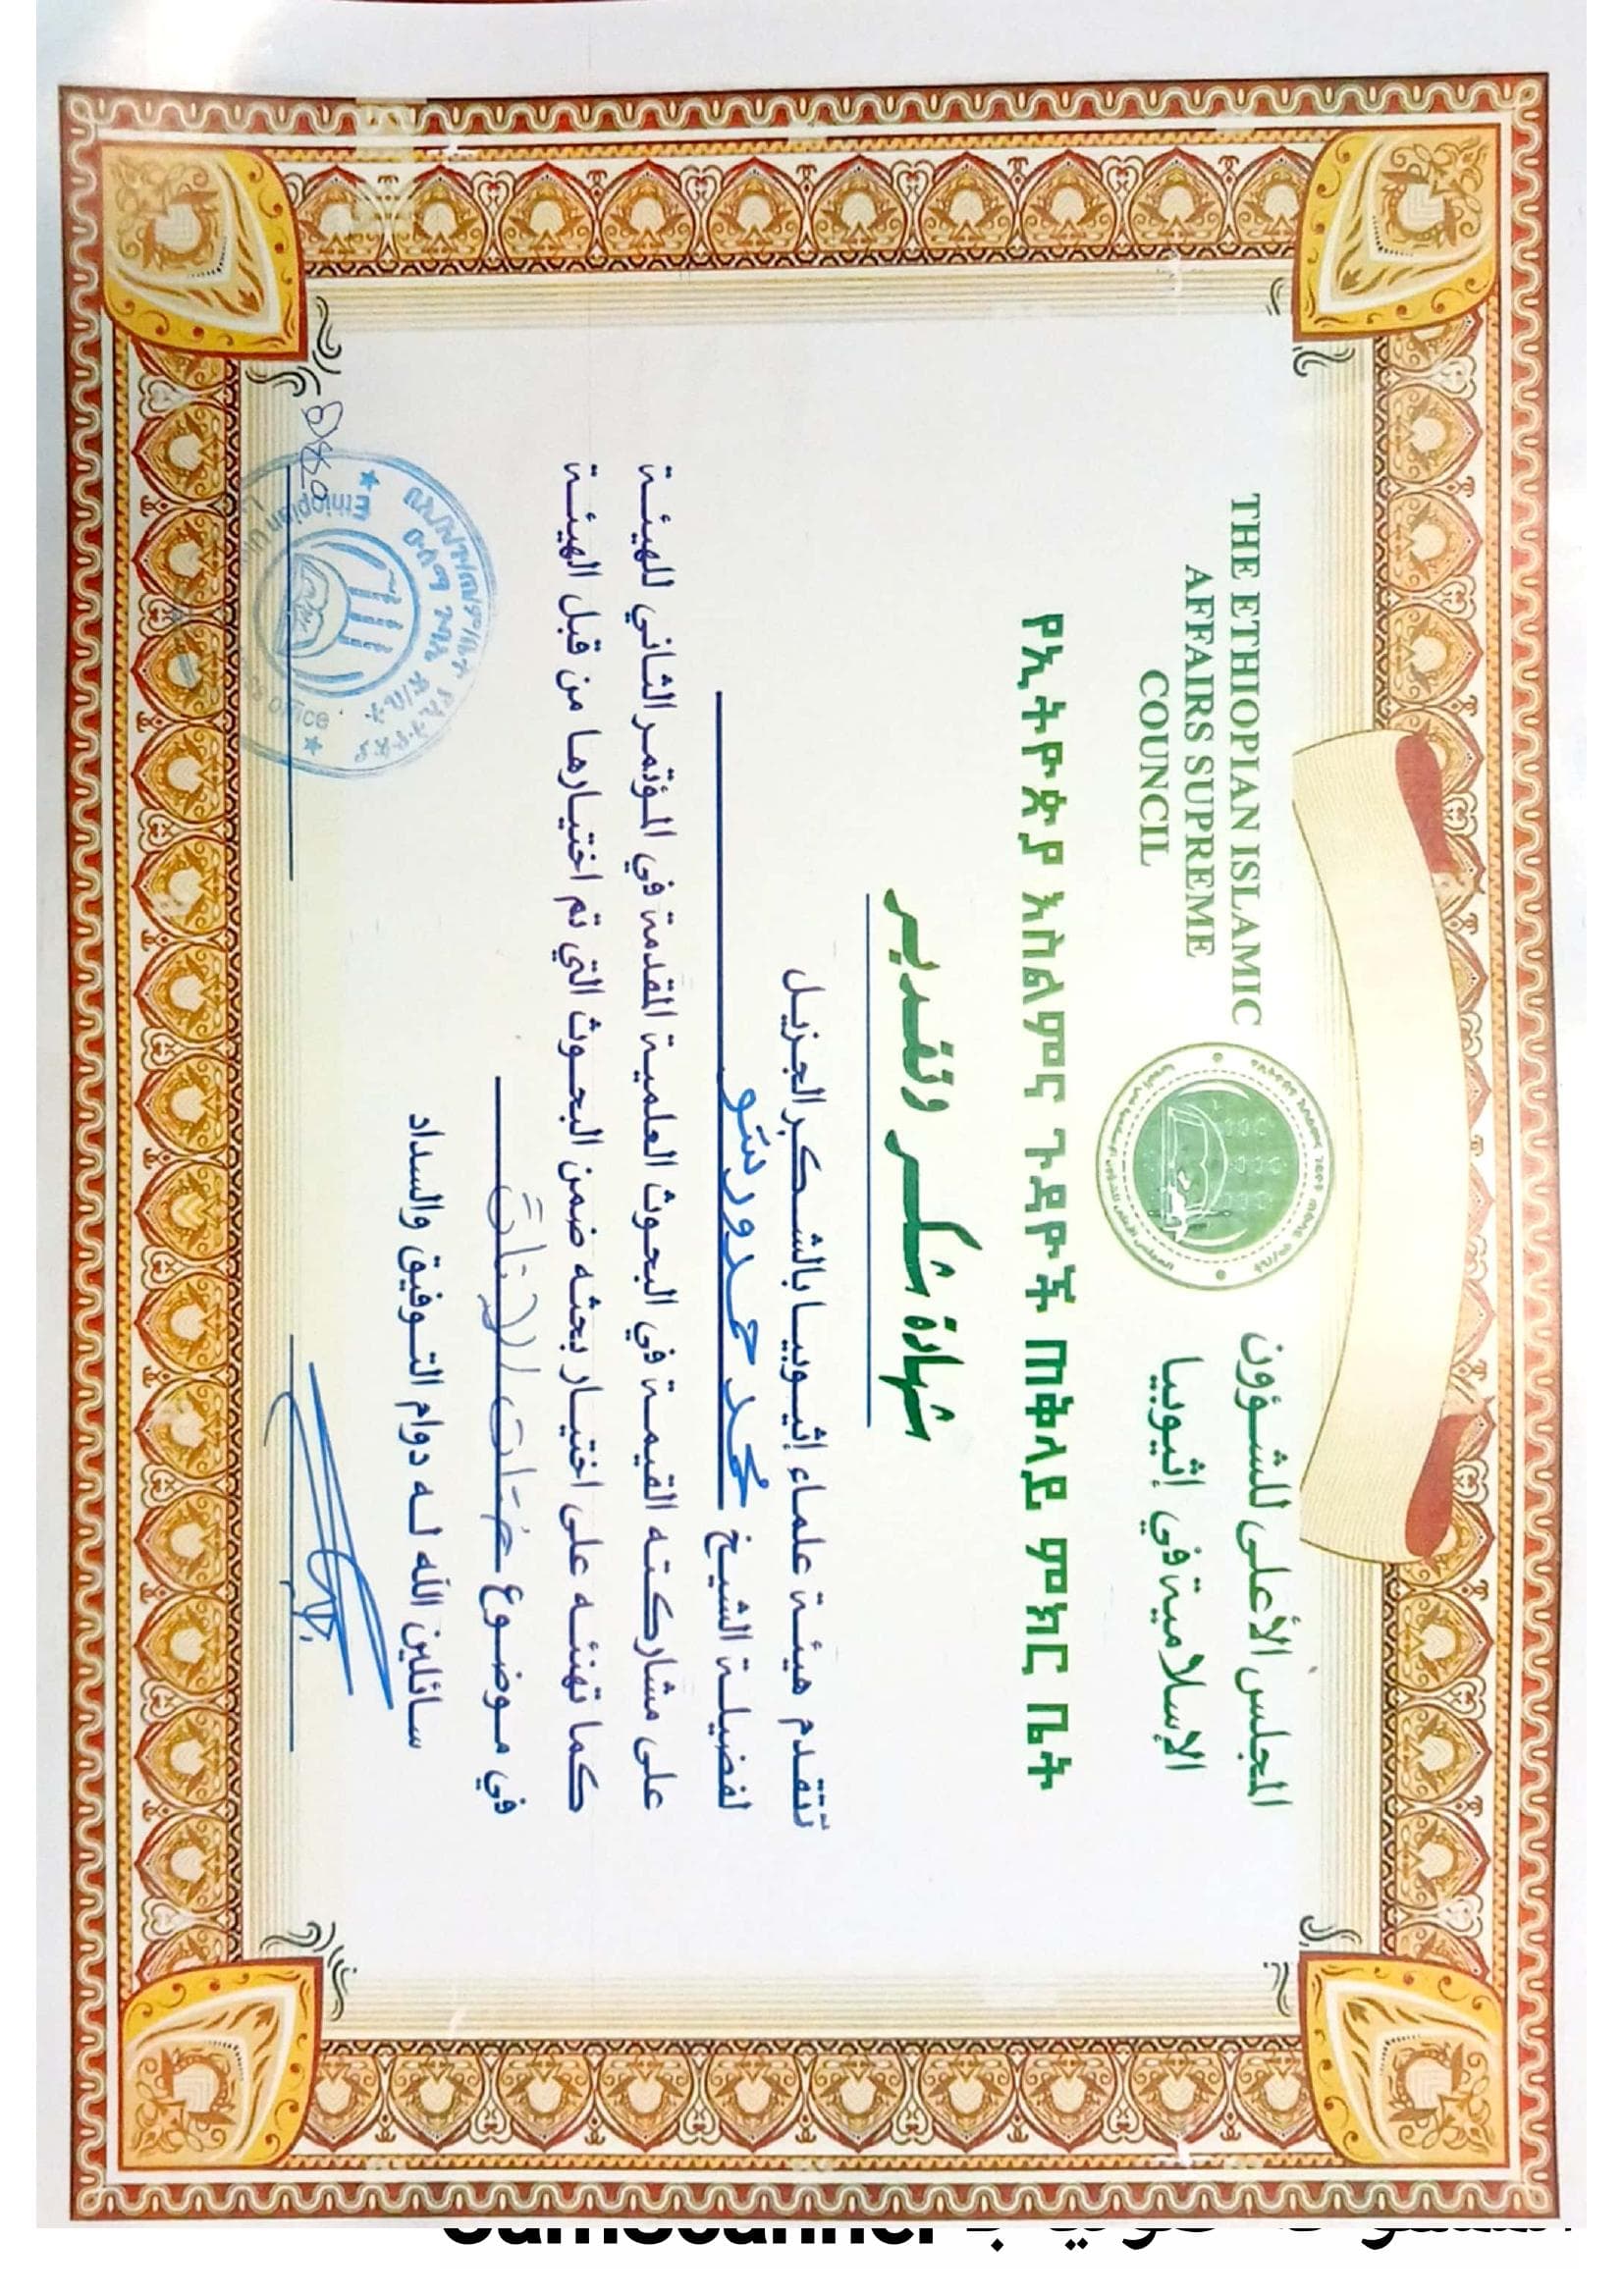 THE ETHIOPIAN ISLAMIC
AFFAIRS SUPREME
COUNCIL
المجلس الأعلى للشؤون
الإسلامية في إثيوبيا
የኢትዮጵያ እስልምና ጉዳዮች ጠቅላይ ምክር ቤት
شهادة شكر وتقدير
تتقدم هيئة علماء إثيوبيا بالشكر الجزيل
لفضيلة الشيخ محمد حمدو رشو
على مشاركته القيمة في البحوث العلمية المقدمة في المؤتمر الثاني للهيئة
كما تهنئه على اختيار بحثه ضمن البحوث التي تم اختيارها من قبل الهيئة
في موضوع
سائلين الله له دوام التوفيق والسداد
Ethiopian
office
CamScanner الممسوحة ضوئيا بـ